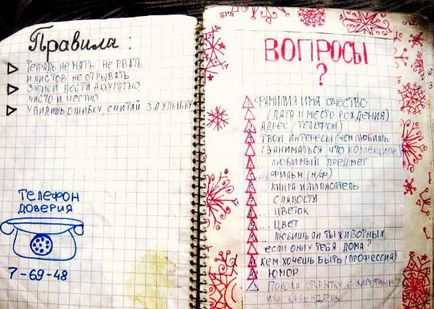 Правила:
Тетрадь не мять, не рвать
и листов не отрывать
Записи вести аккуратно
чисто и честно
Увидишь ошибку, считай за улыбку
Телефон
доверия
7-69-48
ВОПРОСЫ
?
Фамилия имя отчество
(дата и место рождения)
Адрес (телефон)
Твои интересы (чем любишь
заниматься что коллекцион.
... любимый предмет
... фильм (м/ф)
... книга и писатель
... сладости
... цветок
... цвет
... любишь ли ты животных
если они у тебя дома?
Кем хочешь быть (профессия)
Юмор
открытку
или календарик